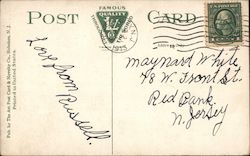 POST CARD
FAMOUS
QUALITY
1915
Pub. by The Art Post Card & Novelty Co., Hoboken, N. J.
Printed in United States.
Love from Russell.
Maynard White
48 W. Front St.
Red Bank.
N. Jersey